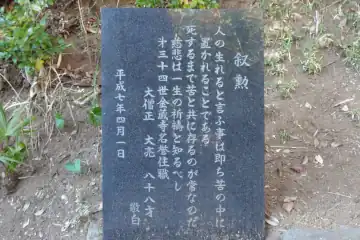 叙勲
人の生れると言ふ事は即ち苦の中に
置かれることである
死するまで苦と共に存るのが常なのだ
慈悲は一生の祈禱と知るべし
才三十四世金蔵寺名誉住職
大僧正 大亮 八十八才
敬白
平成七年四月一日